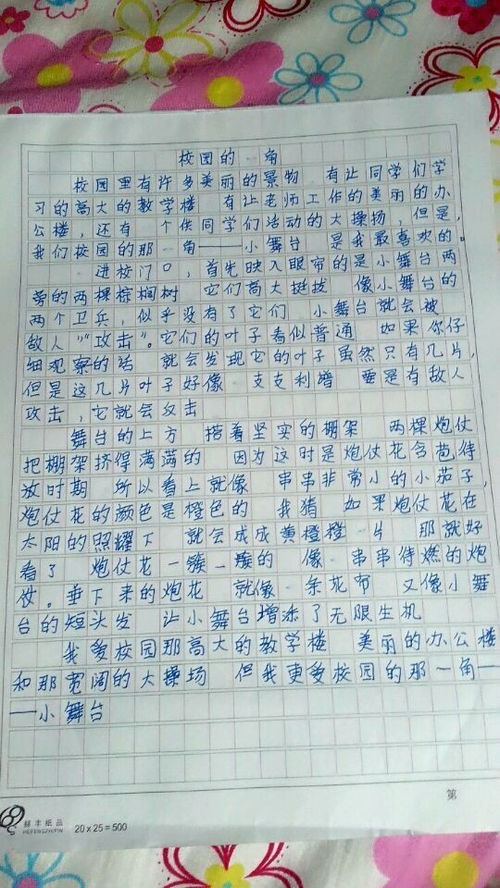 校园的一角
校园里有许多美丽的景物 有让同学们学
习的高大的教学楼 有让老师工作的美丽的办
公楼，还有一个供同学们活动的大操场，但是，
我们校园的那一角——小舞台 是我最喜欢的。
一进校门口，首先映入眼帘的是小舞台两
旁的两棵棕榈树 它们高大挺拔 像小舞台的
两个卫兵，似乎没有了它们 小舞台就会被
敌人“攻击”。它们的叶子看似普通 如果你仔
细观察的话 就会发现它的叶子虽然只有几片，
但是这几片叶子好像一支支利 要是有敌人
攻击，它就会反击
舞台的上方 搭着坚实的棚架 两棵炮仗
把棚架挤得满满的 因为这时是炮仗花含苞待
放时期 所以看上就像一串串非常小的小茄子，
炮仗花的颜色是橙色的 我猜 如果炮仗花在
太阳的照耀下 就会成成黄橙橙一片 那就好
看了 炮仗花一簇一簇的 像一串串待燃的炮
仗。垂下来的炮花 就像一条花布 又像小舞
台的短头发 让小舞台增添了无限生机
我爱校园那高大的教学楼 美丽的办公楼
和那宽阔的大操场 但我更爱校园的那一角—
—小舞台
第
赫丰纸品
HEFENGZHIPIN
20x25=500